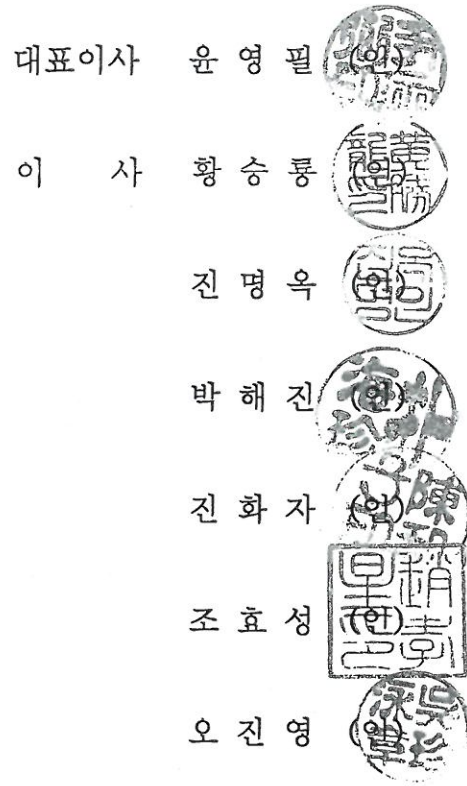 대표이사 윤영필 (인)
이 사 황승룡
진명옥 (인)
박해진 (인)
진화자 (인)
조효성 (인)
오진영 (인)